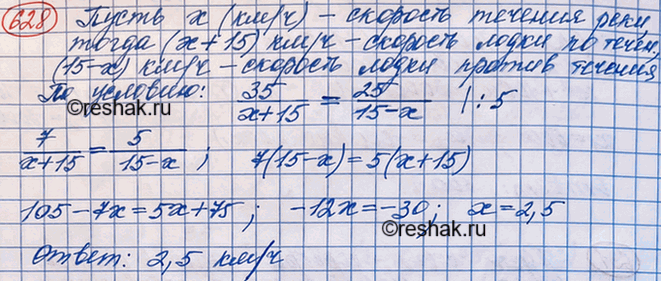 628 Пусть x (км/ч) – скорость течения реки,
тогда (x+15) км/ч – скорость лодки по течен,
(15-x) км/ч – скорость лодки против течения
По условию: 35/(x+15) = 25/(15-x) | : 5
©reshak.ru ©reshak.ru
7/(x+15) = 5/(15-x) ; 7(15-x)=5(x+15)
105-7x=5x+75; -12x=-30; x=2,5
Ответ: 2,5 км/ч
©reshak.ru